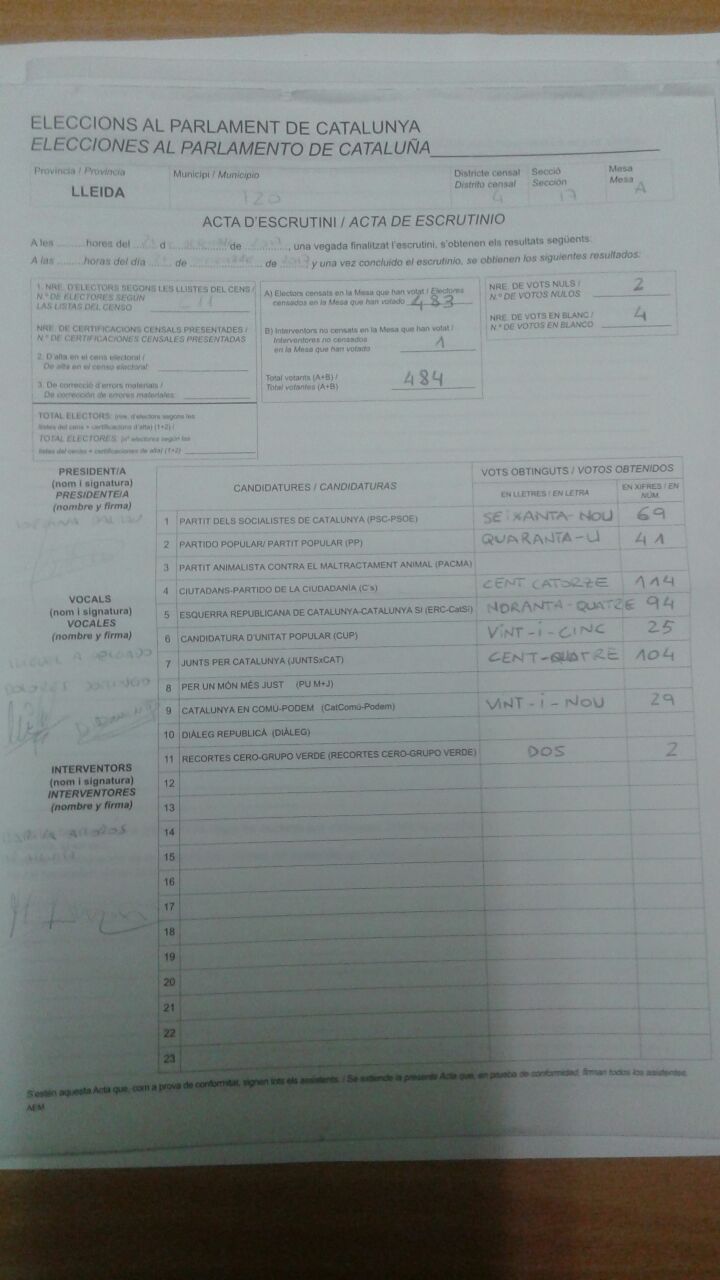 ELECCIONS AL PARLAMENT DE CATALUNYA
ELECCIONES AL PARLAMENTO DE CATALUÑA
Província / Provincia
LLEIDA
Municipi / Municipio
120
Districte censal
Distrito censal
4
Secció
Sección
17
Mesa
Mesa
A
ACTA D'ESCRUTINI / ACTA DE ESCRUTINIO
A les ......... hores del ... 21 d ............... de ............, una vegada finalitzat l'escrutini, s'obtenen els resultats següents:
A las ......... horas del día ... 21 de ............... de 2017 y una vez concluido el escrutinio, se obtienen los siguientes resultados:
1. NRE. D'ELECTORS SEGONS LES LLISTES DEL CENS /
N.º DE ELECTORES SEGÚN
LAS LISTAS DEL CENSO
NRE. DE CERTIFICACIONS CENSALS PRESENTADES /
N.º DE CERTIFICACIONES CENSALES PRESENTADAS
2. D'alta en el cens electoral /
De alta en el censo electoral:
3. De correcció d'errors materials /
De corrección de errores materiales:
TOTAL ELECTORS: (nre. d'electors segons les
llistes del cens + certificacions d'alta) (1+2) /
TOTAL ELECTORES: (nº electores según las
listas del censo + certificaciones de alta) (1+2)
A) Electors censats en la Mesa que han votat / Electores
censados en la Mesa que han votado 483
B) Interventors no censats en la Mesa que han votat /
Interventores no censados
en la Mesa que han votado 1
Total votants (A+B) /
Total votantes (A+B) 484
NRE. DE VOTS NULS /
N.º DE VOTOS NULOS 2
NRE. DE VOTS EN BLANC /
N.º DE VOTOS EN BLANCO 4
PRESIDENT/A
(nom i signatura)
PRESIDENTE/A
(nombre y firma)
VOCALS
(nom i signatura)
VOCALES
(nombre y firma)
DOLORES DOMINGO
INTERVENTORS
(nom i signatura)
INTERVENTORES
(nombre y firma)
CANDIDATURES / CANDIDATURAS
VOTS OBTINGUTS / VOTOS OBTENIDOS
EN LLETRES / EN LETRA
EN XIFRES / EN NÚM.
1 PARTIT DELS SOCIALISTES DE CATALUNYA (PSC-PSOE) SEIXANTA-NOU 69
2 PARTIDO POPULAR/ PARTIT POPULAR (PP) QUARANTA-U 41
3 PARTIT ANIMALISTA CONTRA EL MALTRACTAMENT ANIMAL (PACMA)
4 CIUTADANS-PARTIDO DE LA CIUDADANÍA (C's) CENT CATORZE 114
5 ESQUERRA REPUBLICANA DE CATALUNYA-CATALUNYA SÍ (ERC-CatSí) NORANTA-QUATRE 94
6 CANDIDATURA D'UNITAT POPULAR (CUP) VINT-I-CINC 25
7 JUNTS PER CATALUNYA (JUNTSxCAT) CENT-QUATRE 104
8 PER UN MÓN MÉS JUST (PU M+J)
9 CATALUNYA EN COMÚ-PODEM (CatComú-Podem) VINT-I-NOU 29
10 DIÀLEG REPUBLICÀ (DIÀLEG)
11 RECORTES CERO-GRUPO VERDE (RECORTES CERO-GRUPO VERDE) DOS 2
12
13
14
15
16
17
18
19
20
21
22
23
S'estén aquesta Acta que, com a prova de conformitat, signen tots els assistents. / Se extiende la presente Acta que, en prueba de conformidad, firman todos los asistentes.
AEM